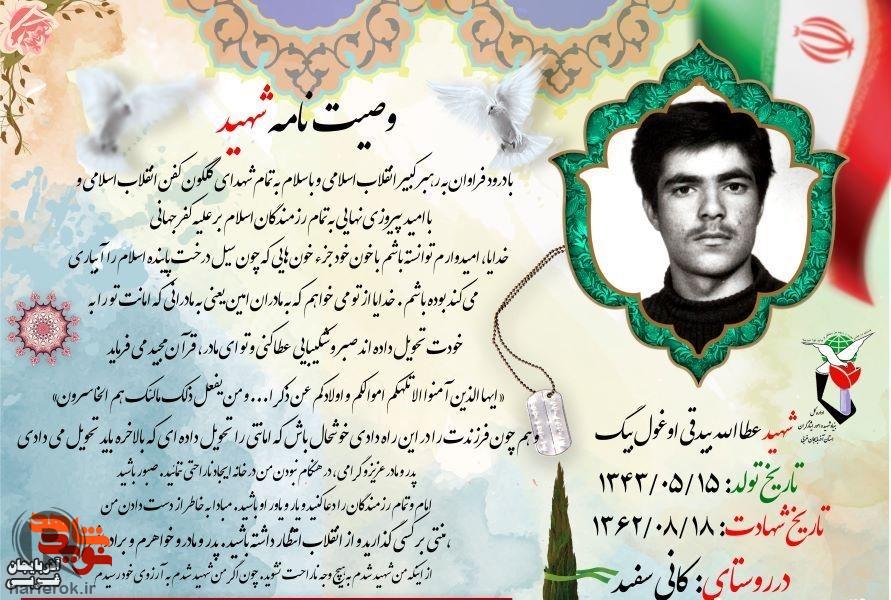 وصیت نامه شهید
بادرود فراوان به رهبر کبیر انقلاب اسلامی و باسلام به تمام شهدای گلگون کفن انقلاب اسلامی و
با امید پیروزی نهایی به تمام رزمندگان اسلام بر علیه کفر جهانی
خدایا، امیدوارم توانسته باشم با خون خود جزء خون هایی که چون سیل درخت پاینده اسلام را آبیاری
می کند بوده باشم . خدایا از تو می خواهم که به مادران امین یعنی به مادرانی که امانت تو را به
خودت تحویل داده اند صبر و شکیبایی عطا کنی و تو ای مادر، قرآن مجید می فرماید
«ایها الذین آمنوا لاتلهکم اموالکم و اولادکم عن ذکر ا... و من یفعل ذلک مالنک هم الخاسرون»
و هم چون فرزندت را در این راه دادی خوشحال باش که امانتی را تحویل داده ای که بالاخره باید تحویل می دادی
پدر و مادر عزیز و گرامی، در هنگام نبودن من در خانه ایجاد ناراحتی ننمائید. صبور باشید
امام و تمام رزمندگان را دعا کنید و یار و یاور او باشید. مبادا به خاطر از دست دادن من
، منتی بر کسی گذارید و از انقلاب انتظار داشته باشید. پدر و مادر و خواهرم و براد
از اینکه من شهید شدم به هیچ وجه ناراحت نشوید. چون اگر من شهید شدم به آرزوی خود رسیدم
شهید عطاالله بیدقی اوغول بیگ
تاریخ تولد: ۱۳۴۳/۰۵/۱۵
تاریخ شهادت: ۱۳۶۲/۰۸/۱۸
در روستای: کانی سفید
اداره کل
بنیاد شهید و امور ایثارگران
استان آذربایجان غربی
نوید شاهد
آذربایجان
غربی
harferok.ir